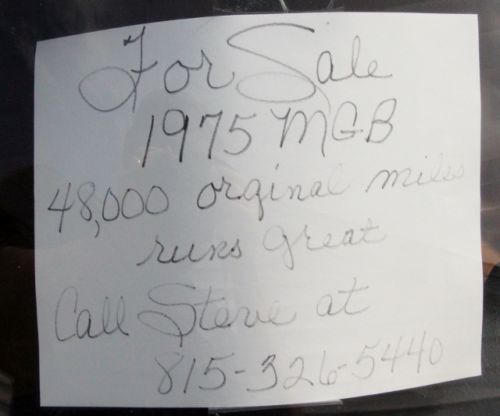 For Sale
1975 MGB
48,000 orginal miles
runs great
Call Steve at
815-326-5440